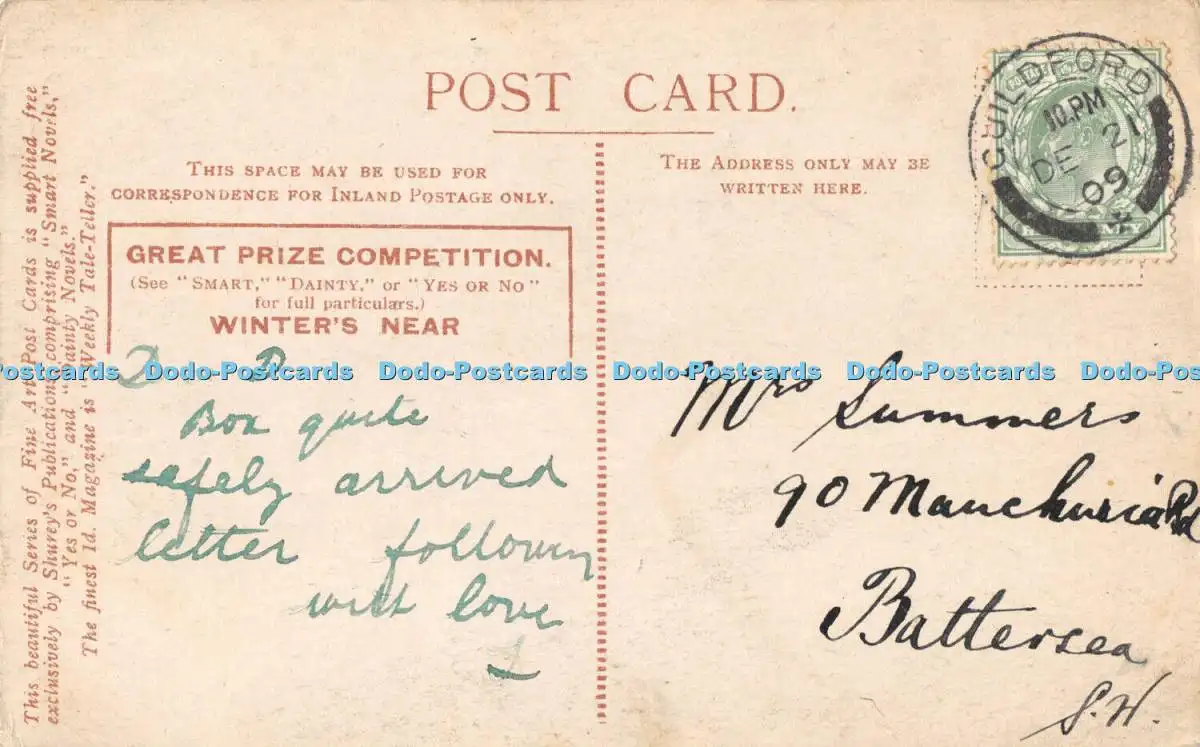 POST CARD.
THIS SPACE MAY BE USED FOR
CORRESPONDENCE FOR INLAND POSTAGE ONLY.
GREAT PRIZE COMPETITION.
(See "SMART," "DAINTY," or "YES OR NO"
for full particulars.)
WINTER'S NEAR
D. B
Box quite
safely arrived
letter following
with love
L
THE ADDRESS ONLY MAY BE
WRITTEN HERE.
GUILDFORD
10.PM
DE 21
09
Mrs Summers
90 Manchuria Rd
Battersea
S.W.
This beautiful Series of Fine Art Post Cards is supplied free
exclusively by Shurey's Publications, comprising "Smart Novels,"
"Yes or No," and "Dainty Novels."
The finest 1d. Magazine is "Weekly Tale-Teller."
Dodo-Postcards Dodo-Postcards Dodo-Postcards Dodo-Postcards Dodo-Postcards Dodo-Pos